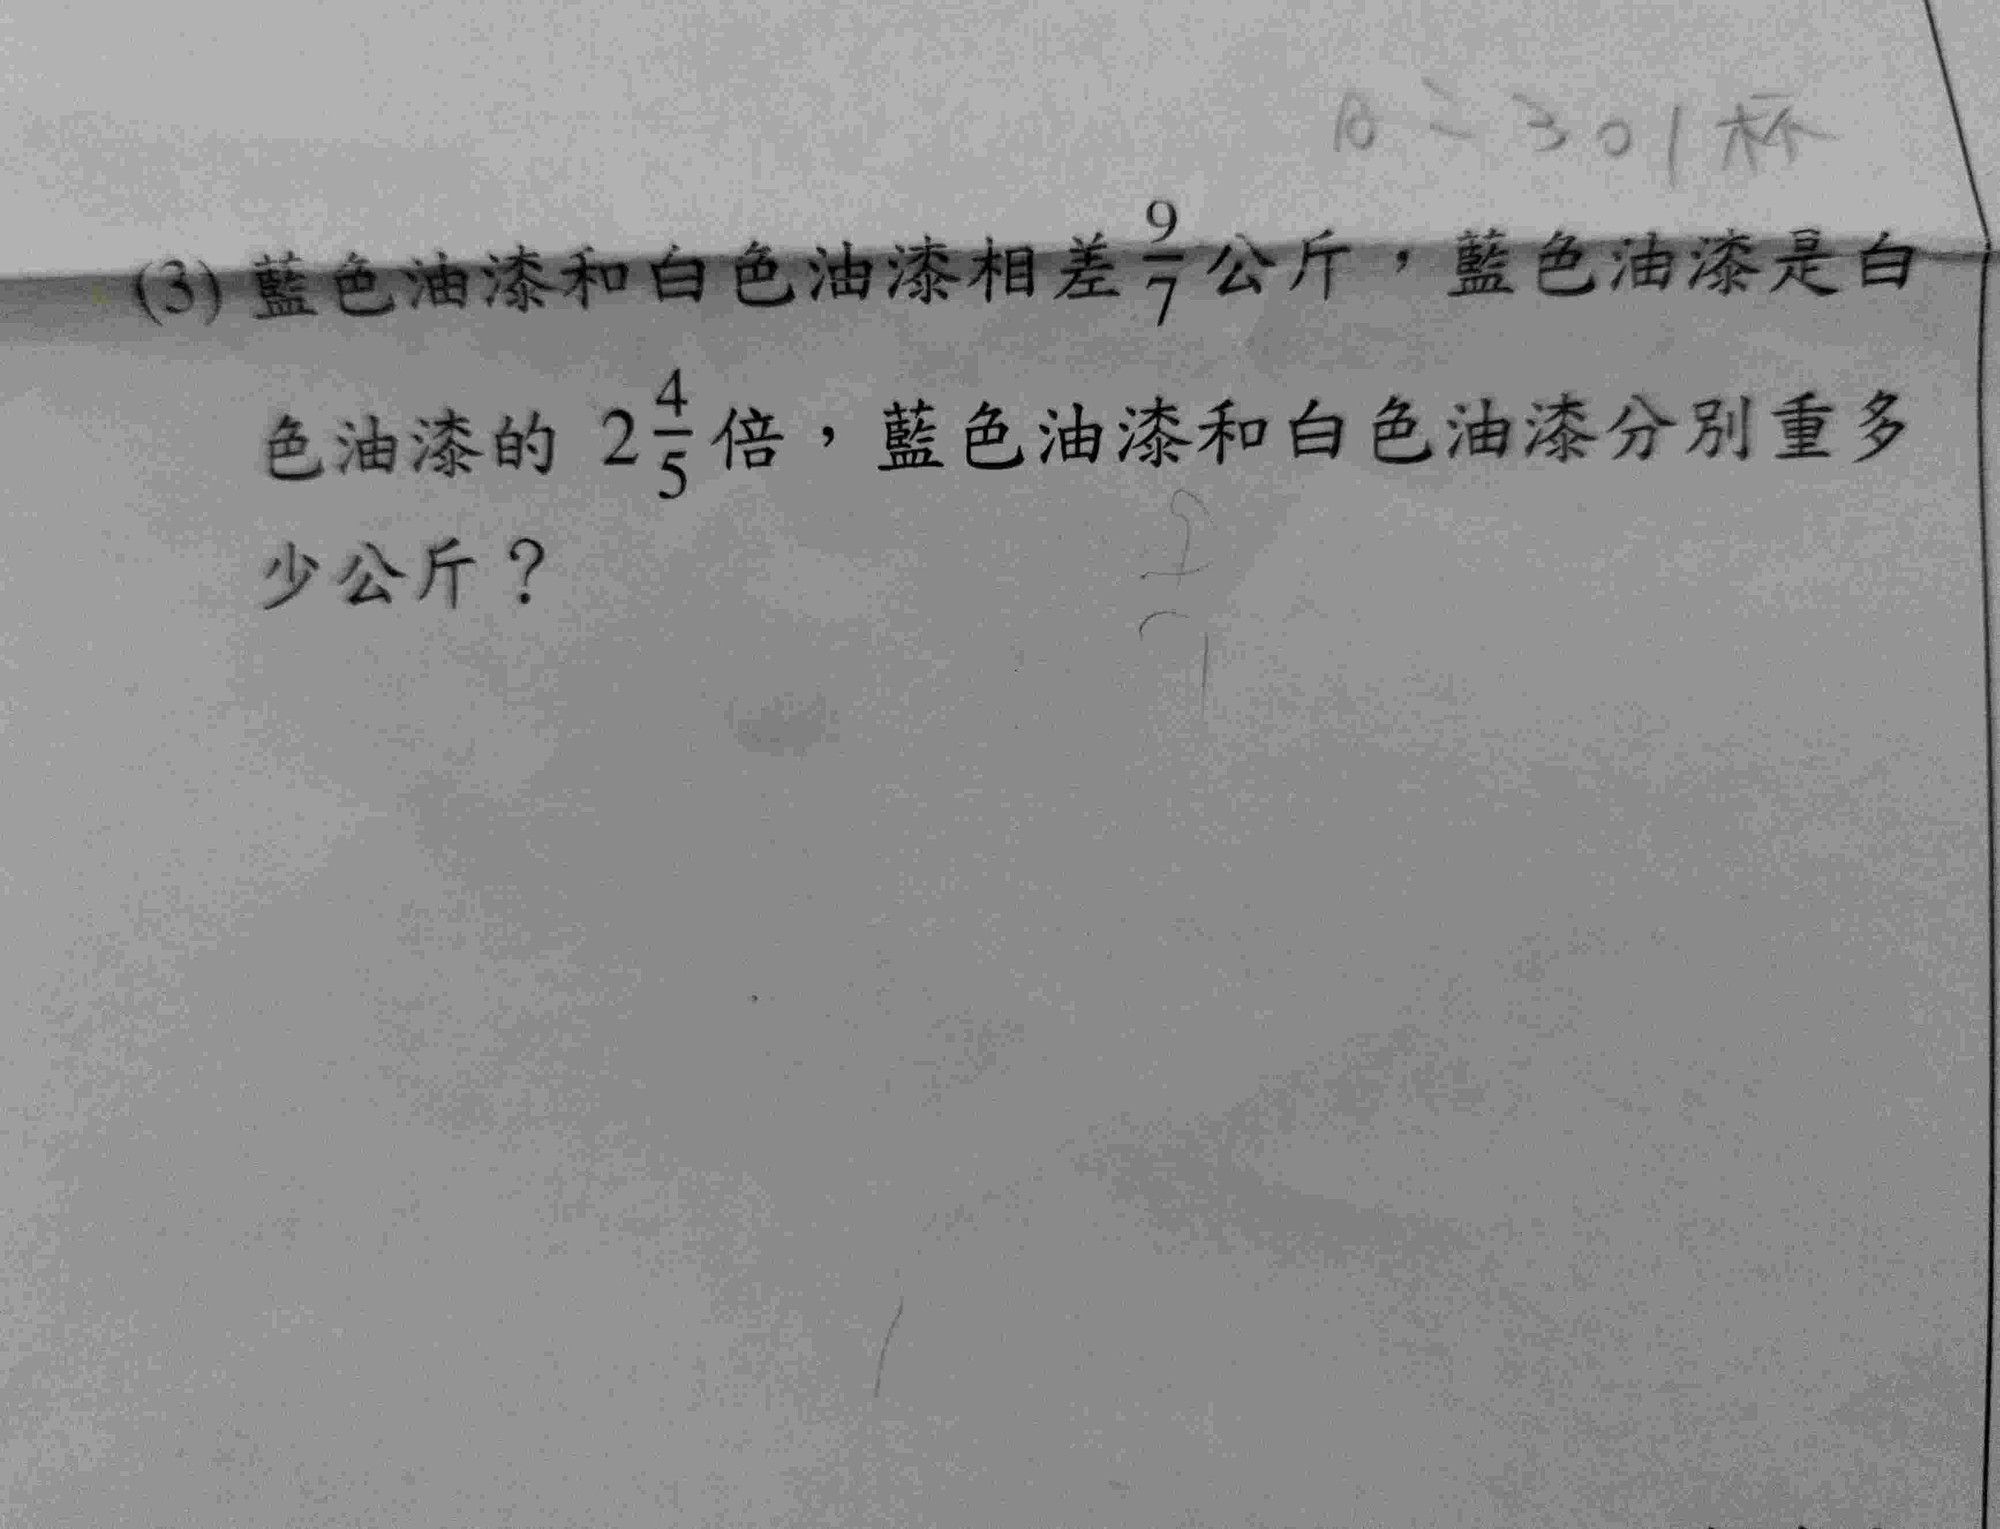 A=301杯
(3) 藍色油漆和白色油漆相差 9/7 公斤，藍色油漆是白
色油漆的 2 4/5 倍，藍色油漆和白色油漆分別重多
少公斤？